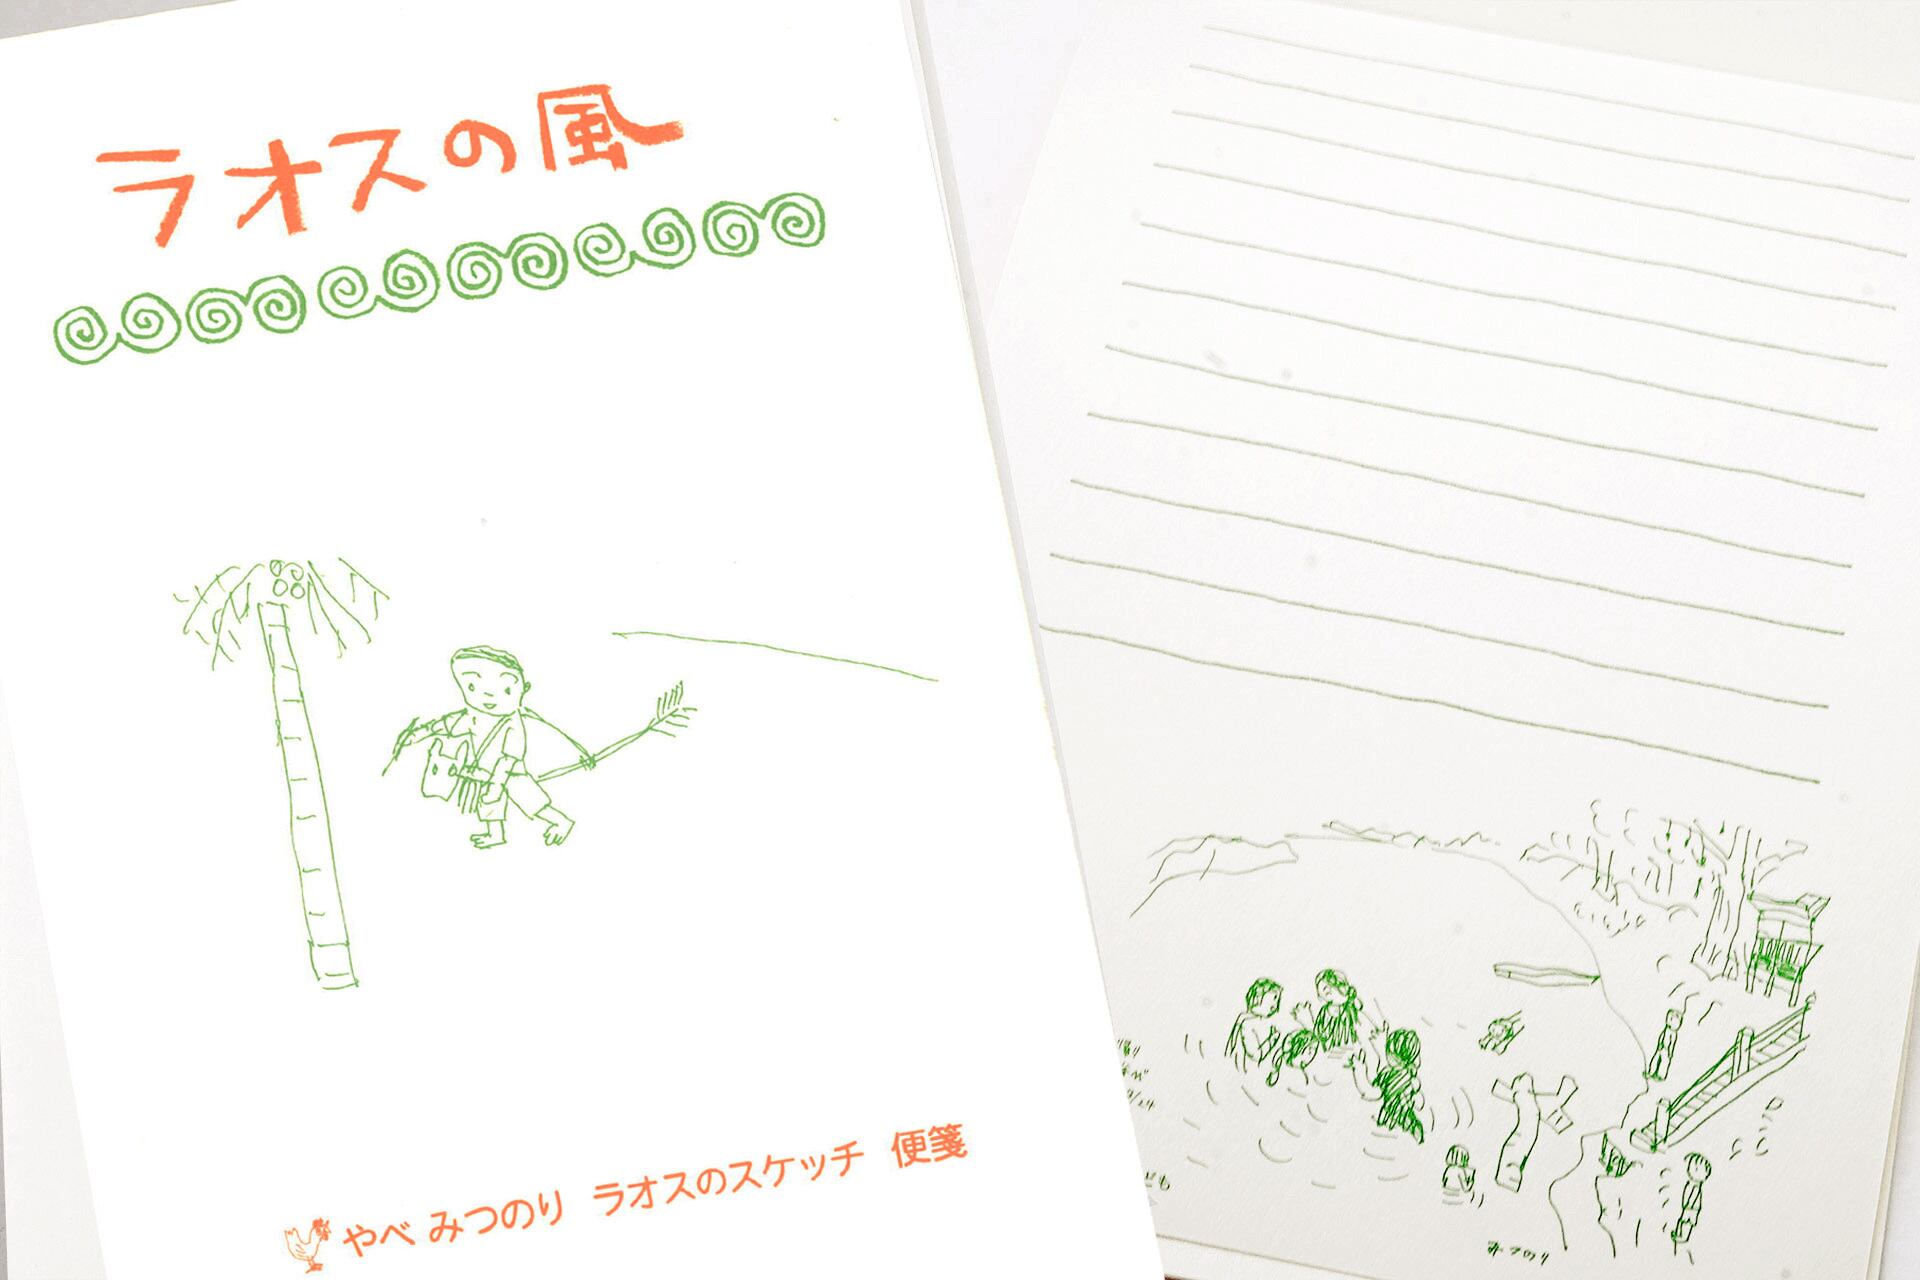 ラオスの風
やべ みつのり ラオスのスケッチ 便箋
みつのり